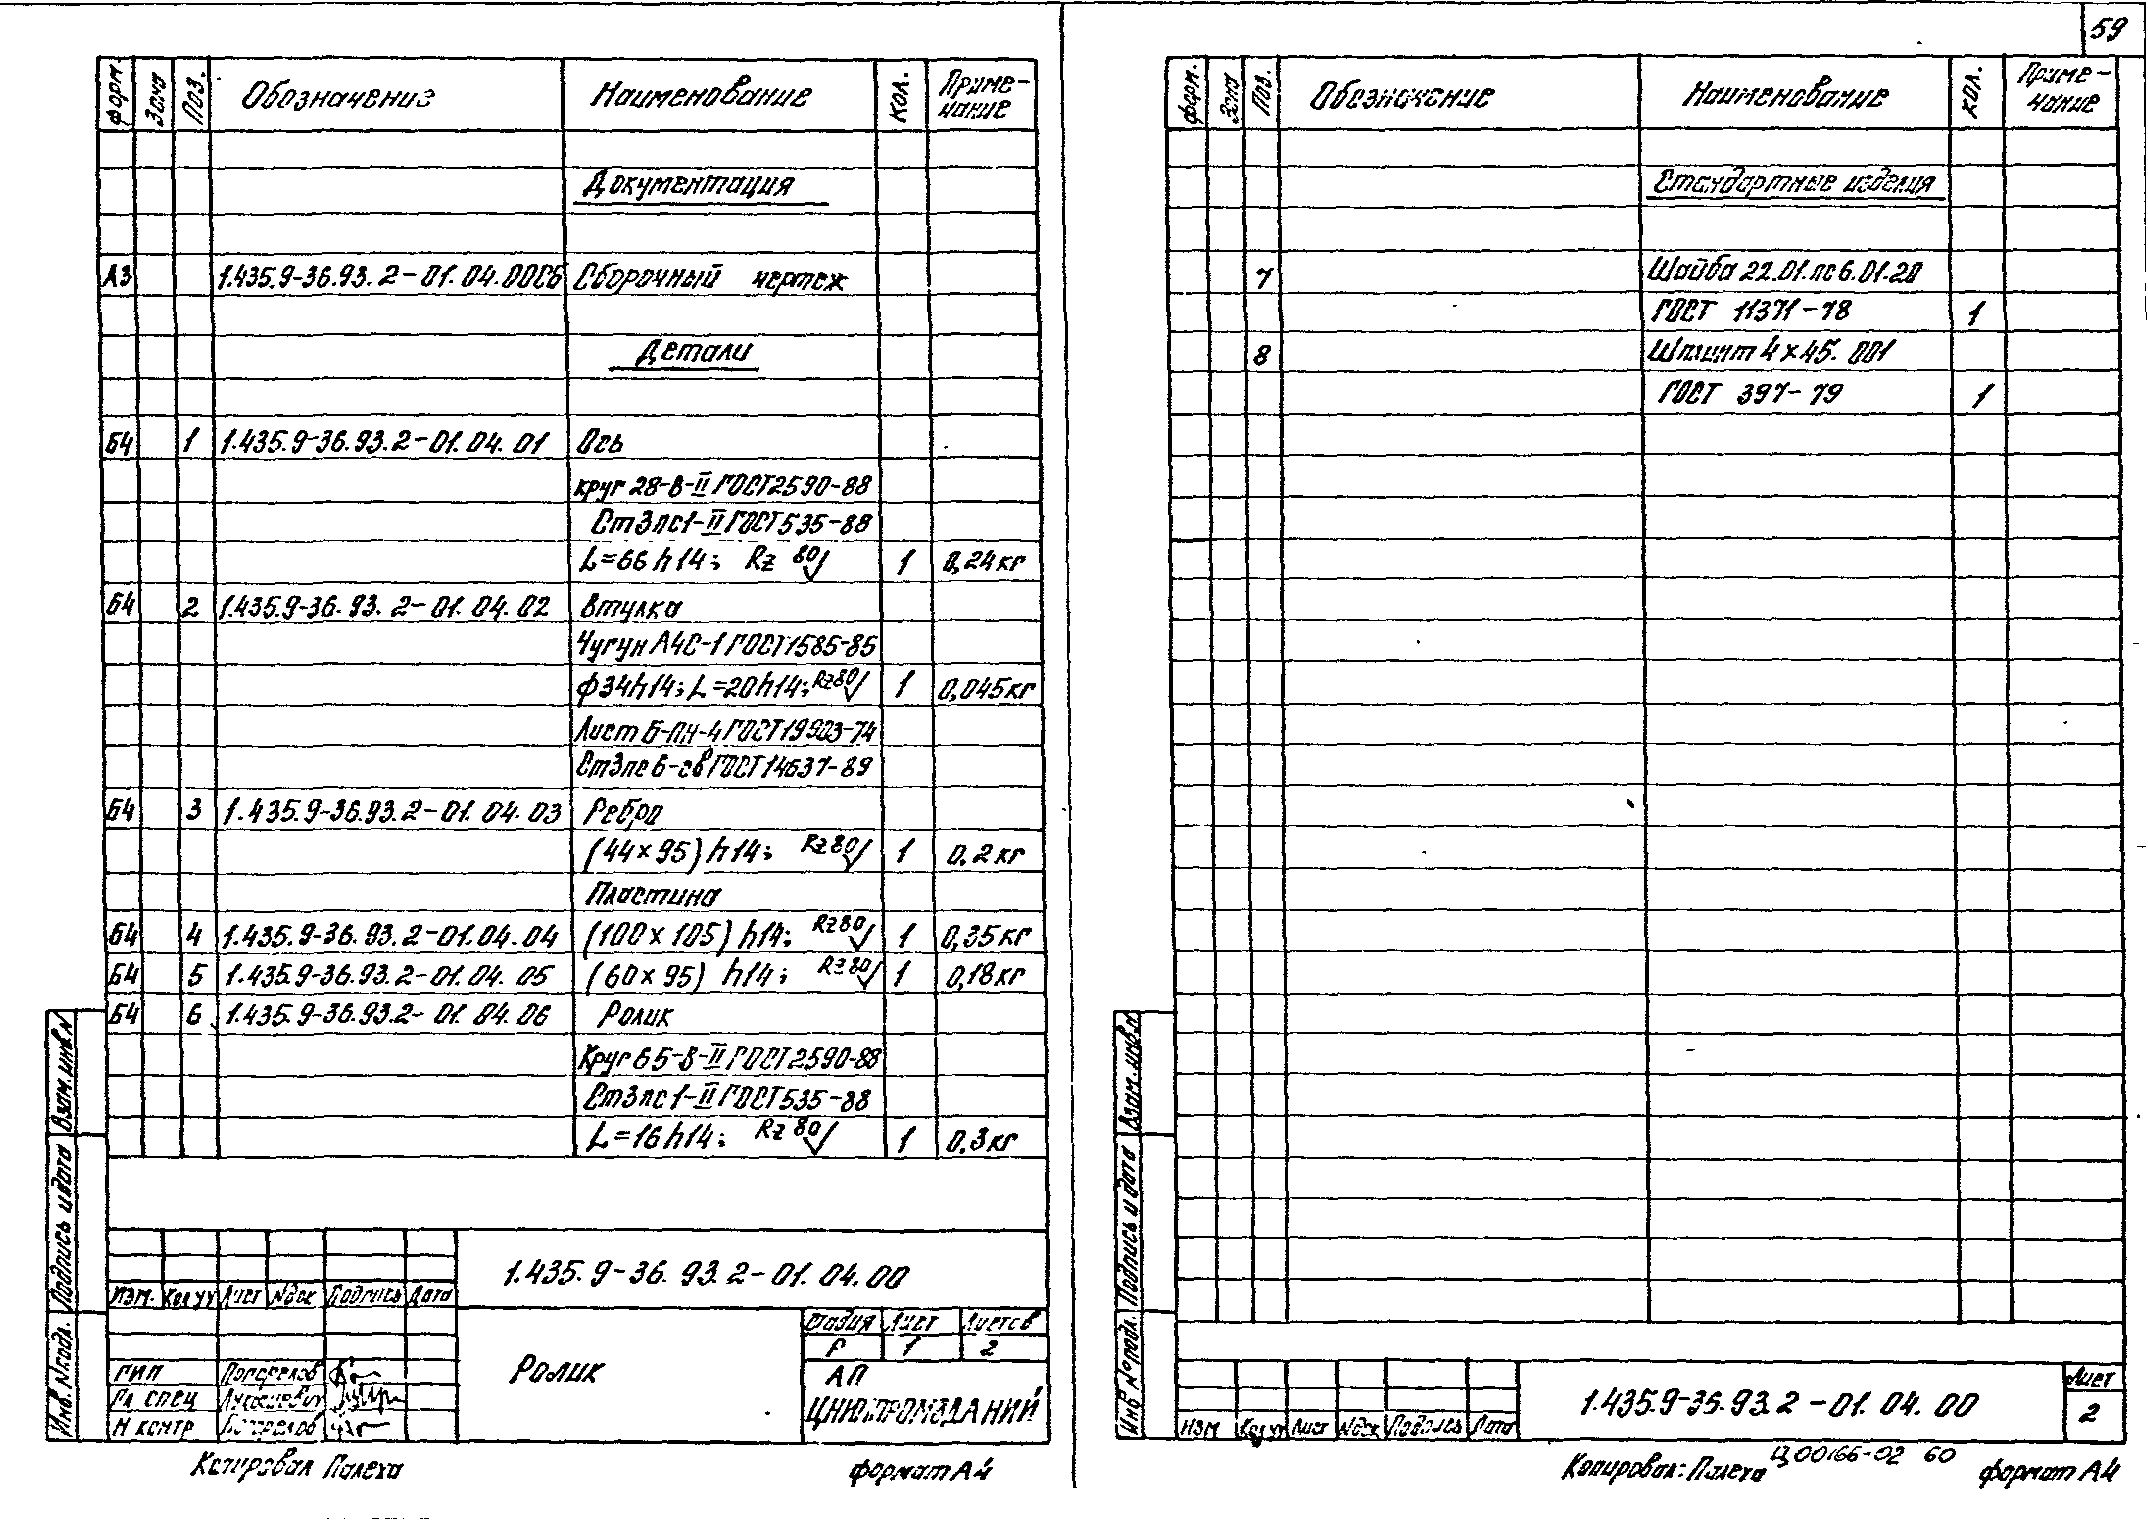 59
Форм. Зона Поз. Обозначение Наименование Кол. Приме-
чание
Документация
А3 1.435.9-36.93.2-01.04.00СБ Сборочный чертеж
Детали
Б4 1 1.435.9-36.93.2-01.04.01 Ось
круг 28-В-II ГОСТ 2590-88
Ст3пс1-II ГОСТ 535-88
L=66h14; Rz 80 1 0,24кг
Б4 2 1.435.9-36.93.2-01.04.02 Втулка
Чугун АЧС-1 ГОСТ 1585-85
ф34h14; L=20h14; Rz80 1 0,045кг
Лист Б-ПН-4 ГОСТ 19903-74
Ст3пс6-св ГОСТ 14637-89
Б4 3 1.435.9-36.93.2-01.04.03 Ребро
(44×95)h14; Rz80 1 0,2кг
Пластина
Б4 4 1.435.9-36.93.2-01.04.04 (100×105)h14; Rz80 1 0,35кг
Б4 5 1.435.9-36.93.2-01.04.05 (60×95) h14; Rz80 1 0,18кг
Б4 6 1.435.9-36.93.2-01.04.06 Ролик
Круг 65-В-II ГОСТ 2590-88
Ст3пс1-II ГОСТ 535-88
L=16h14; Rz 80 1 0,3кг
Взам. инв. N
Подпись и дата
Инв. N подл.
1.435.9-36.93.2-01.04.00
Изм. Кол уч Лист Nдок Подпись Дата
Стадия Лист Листов
Р 1 2
Ролик
ГИП
Гл спец
Н контр
АП
ЦНИИПРОМЗДАНИЙ
Копировал Палеха
формат А4
Форм. Зона Поз. Обозначение Наименование Кол. Приме-
чание
Стандартные изделия
7 Шайба 22.01.пс6.01.20
ГОСТ 11371-78 1
8 Шплинт 4×45.001
ГОСТ 397-79 1
Взам. инв. N
Подпись и дата
Инв № подл.
Изм Кол уч Лист Nдок Подпись Дата
1.435.9-36.93.2-01.04.00
Лист
2
Копировал: Палеха Ц00166-02 60
формат А4